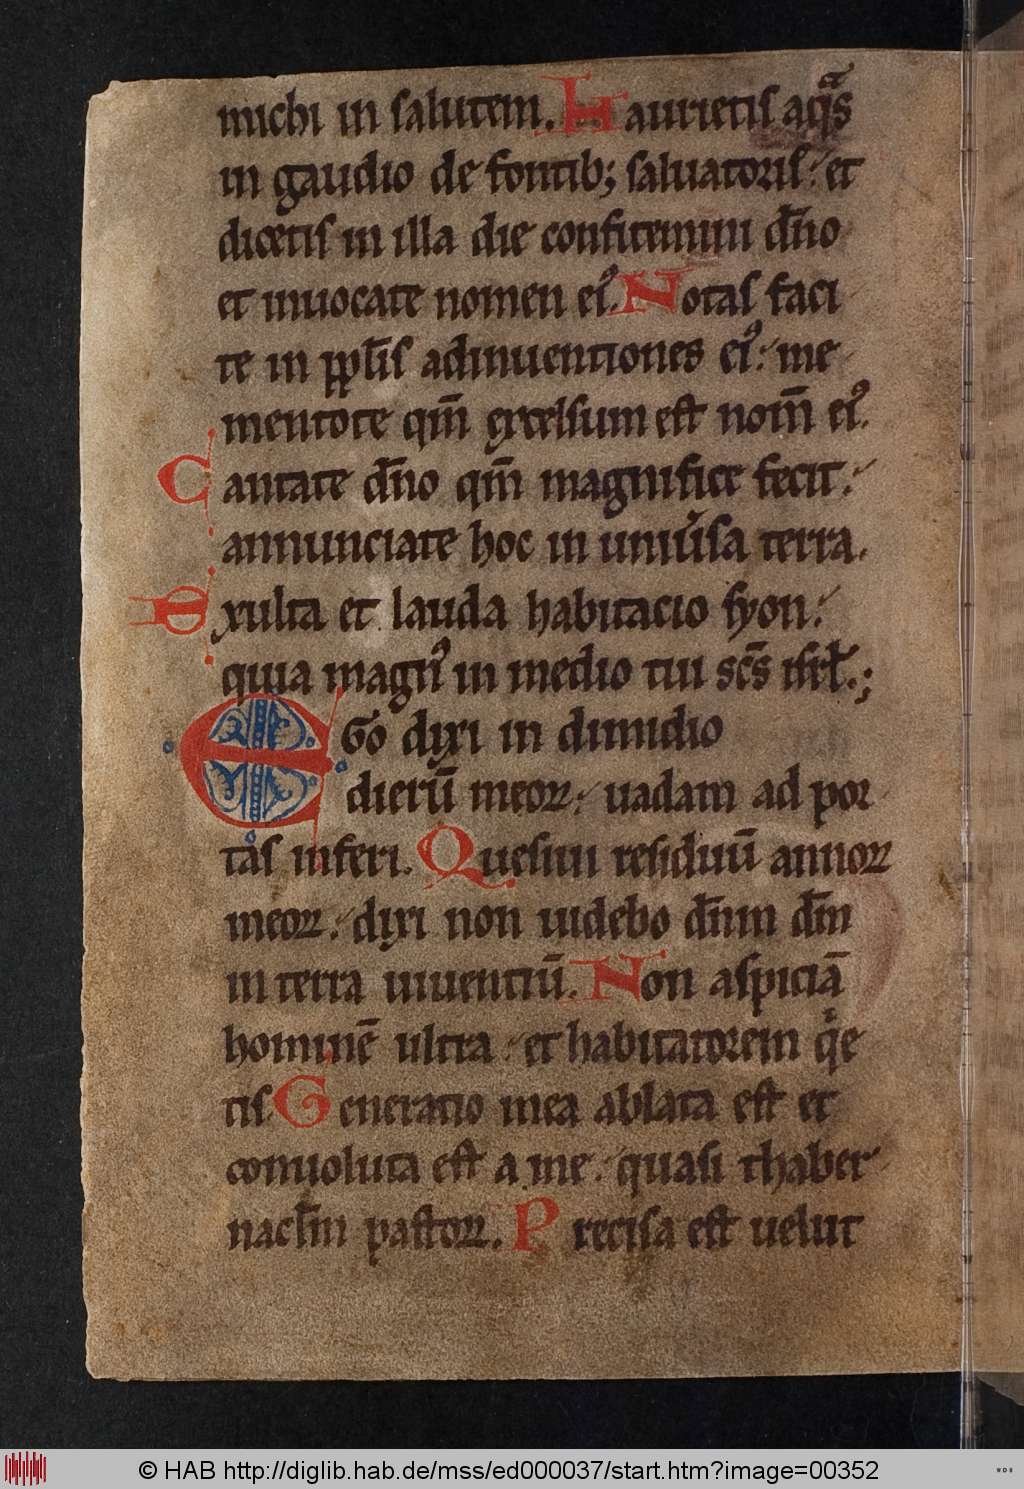 michi in salutem. Haurietis aq̄s
in gaudio de fontib; saluatoris: et
dicetis in illa die confitemini dn̄o
et inuocate nomen ei᾽. Notas faci
te in pplis̄ adinuentiones ei᾽: me
mentote qm̄ excelsum est nom̄ ei᾽.
Cantate dn̄o qm̄ magnifice fecit:
annunciate hoc in uniu᾽sa terra.
Exulta et lauda habitacio syon:
quia magn᾽ in medio tui sc̄s isrl̄.;
EGo dixi in dimidio
dierū meoꝝ: uadam ad por
tas inferi. Quesiui residuū annoꝝ
meoꝝ: dixi non uidebo dn̄m dm̄
in terra uiuentiū. Non aspiciā
hominē ultra: et habitatorem q᾽e
tis. Generatio mea ablata est et
conuoluta est a me: quasi thaber
nacl̄m pastoꝝ. Precisa est uelut
© HAB http://diglib.hab.de/mss/ed000037/start.htm?image=00352